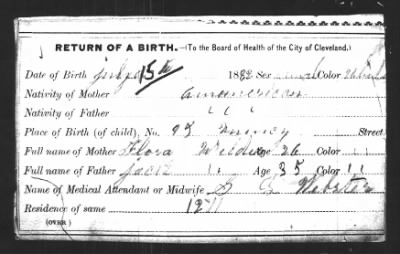 RETURN OF A BIRTH.—(To the Board of Health of the City of Cleveland.)
Date of Birth 15th 1882 Sex Color
Nativity of Mother American
Nativity of Father " "
Place of Birth (of child), No. 95 Quincy Street
Full name of Mother Flora Age 26 Color "
Full name of Father Jacob " Age 35 Color "
Name of Medical Attendant or Midwife S G Webster
Residence of same
(OVER)